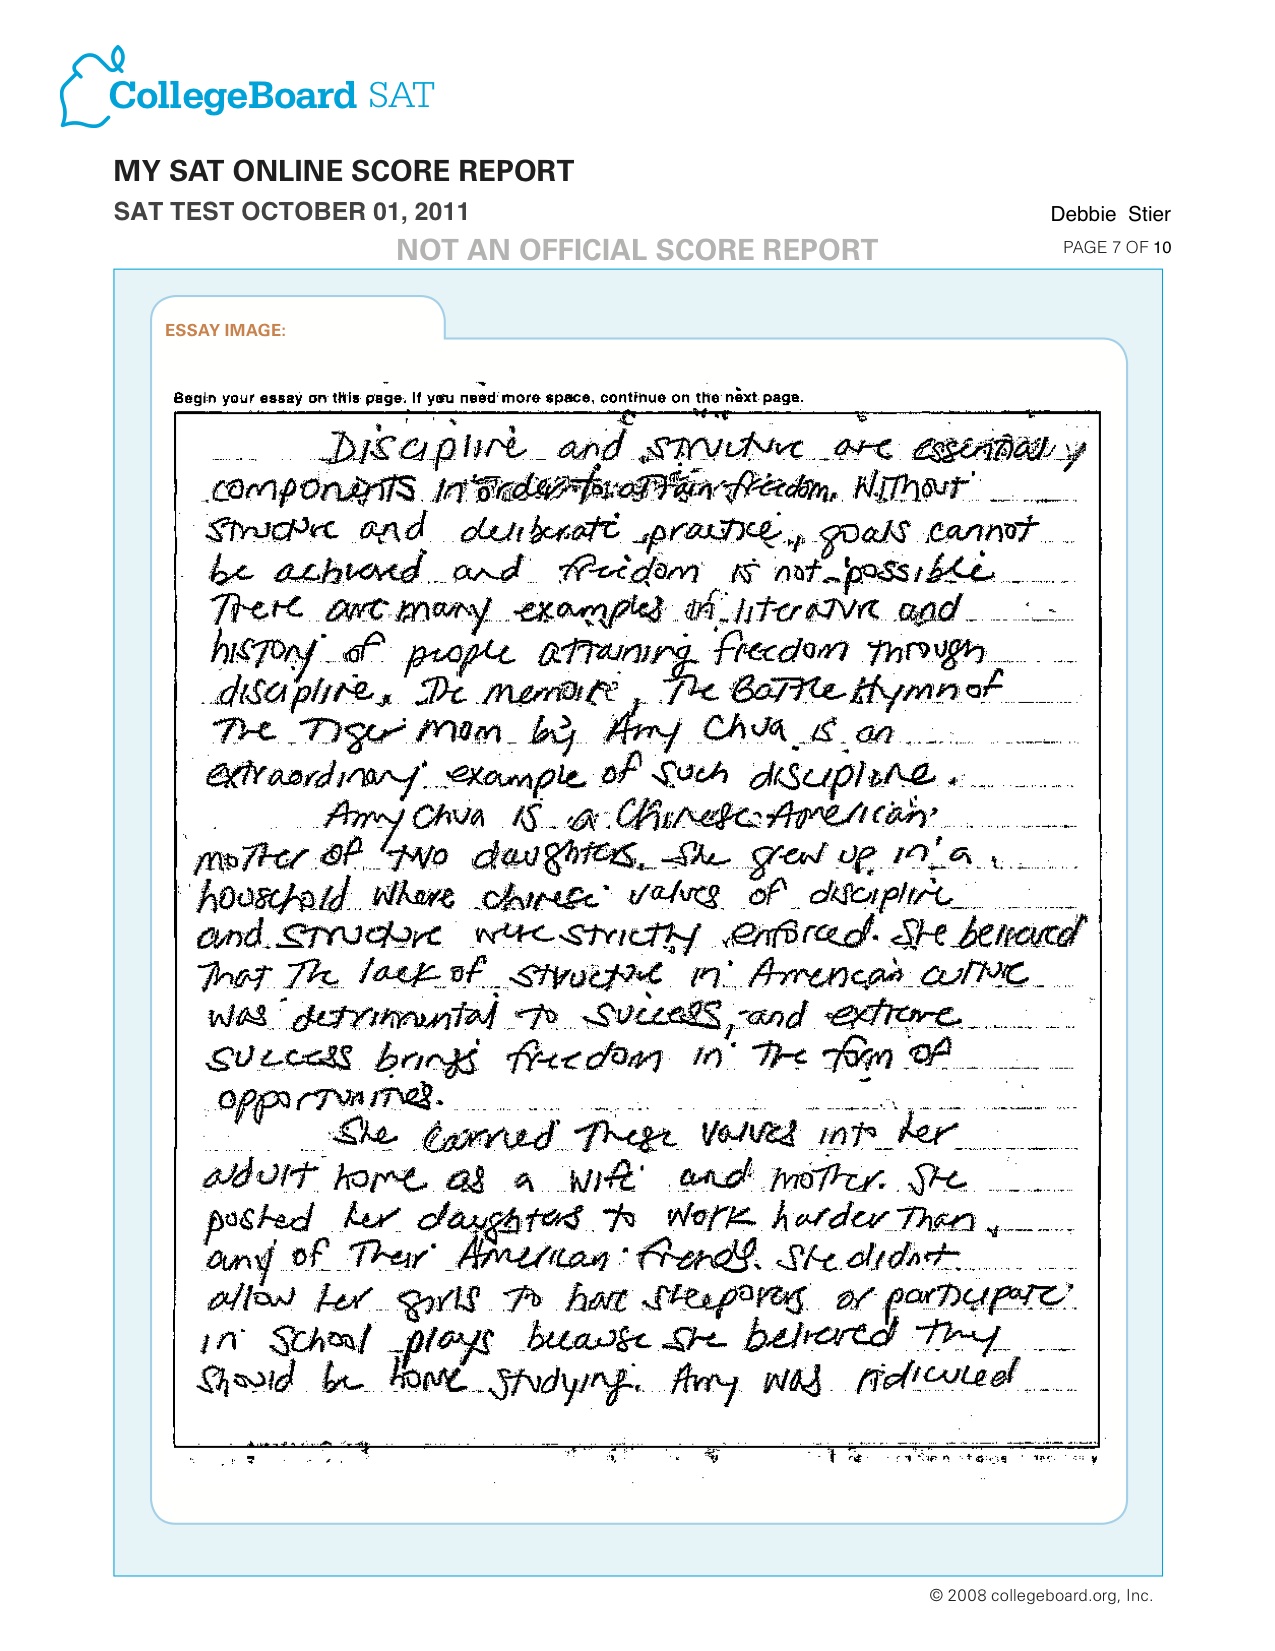 CollegeBoard SAT
MY SAT ONLINE SCORE REPORT
SAT TEST OCTOBER 01, 2011
Debbie Stier
NOT AN OFFICIAL SCORE REPORT
PAGE 7 OF 10
ESSAY IMAGE:
Begin your essay on this page. If you need more space, continue on the next page.
Discipline and structure are essential
components in order to attain freedom. Without
structure and deliberate practice, goals cannot
be achieved and freedom is not possible.
There are many examples in literature and
history of people attaining freedom through
discipline. The memoire, The Battle Hymn of
The Tiger Mom by Amy Chua is an
extraordinary example of such discipline.
Amy Chua is a Chinese-American
mother of two daughters. She grew up in a
household where chinese values of discipline
and structure were strictly enforced. She believed
that the lack of structure in American culture
was detrimental to success, and extreme
success brings freedom in the form of
opportunities.
She carried these values into her
adult home as a wife and mother. She
pushed her daughters to work harder than
any of their American friends. She didn't
allow her girls to have sleepovers or participate
in school plays because she believed they
should be home studying. Amy was ridiculed
© 2008 collegeboard.org, Inc.